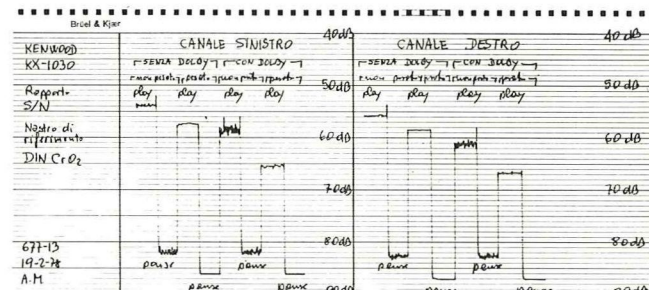 Brüel & Kjær
KENWOOD
KX-1030
Rapporto
S/N
Nastro di
riferimento
DIN CrO2
677-13
19-2-78
A.M
CANALE SINISTRO
SENZA DOLBY CON DOLBY
non pesato pesato non pesato pesato
play play play play
pause pause
pause pause
40 dB
50 dB
60 dB
70 dB
80 dB
90 dB
CANALE DESTRO
SENZA DOLBY CON DOLBY
non pesato pesato non pesato pesato
play play play play
pause pause
pause pause
40 dB
50 dB
60 dB
70 dB
80 dB
90 dB